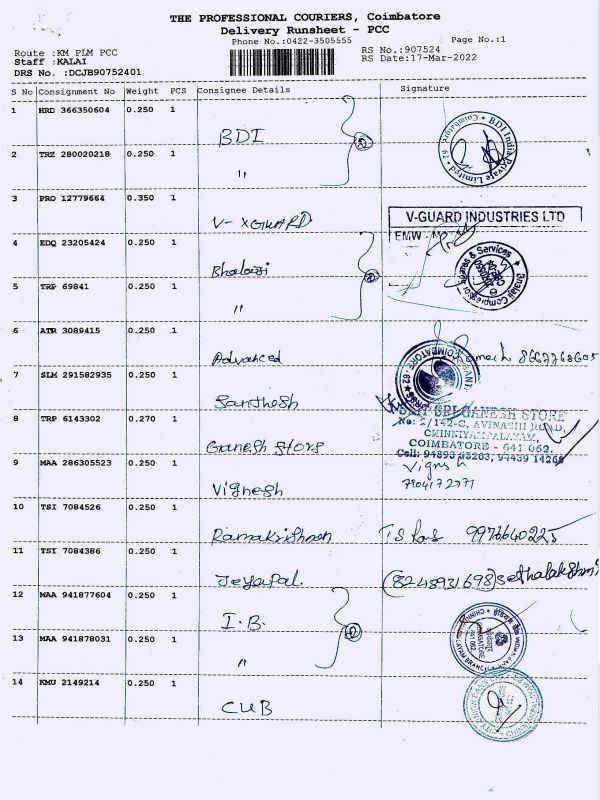 THE PROFESSIONAL COURIERS, Coimbatore
Delivery Runsheet - PCC
Phone No.:0422-3505555
Page No.:1
Route :KM PLM PCC
RS No.:907524
Staff :KALAI
RS Date:17-Mar-2022
DRS No. :DCJB90752401
S No Consignment No Weight PCS Consignee Details Signature
1 HRD 366350604 0.250 1
BDI
BDI India Private Limited
Coimbatore - 62
2 TRZ 280020218 0.250 1
"
3 PRO 12779664 0.350 1
V-XGUARD
V-GUARD INDUSTRIES LTD
4 EDQ 23205424 0.250 1
Bhalaji
5 TRP 69841 0.250 1
"
6 ATR 3089415 0.250 1
Advanced
8667768605
7 SLM 291582935 0.250 1
Santhesh
SRI GANESH STORE
No: 2/142-C, AVINASHI ROAD,
CHINNIYAMPALAYAM,
COIMBATORE - 641 062.
8 TRP 6143302 0.270 1
Ganesh Store
9 MAA 286305523 0.250 1
Vignesh
Vignesh
7904172971
10 TSI 7084526 0.250 1
Ramakrishnan
9976640225
11 TSI 7084386 0.250 1
Jeyapal.
(8248931698) Sethalakshmi
12 MAA 941877604 0.250 1
I.B.
13 MAA 941878031 0.250 1
"
14 KMU 2149214 0.250 1
CUB